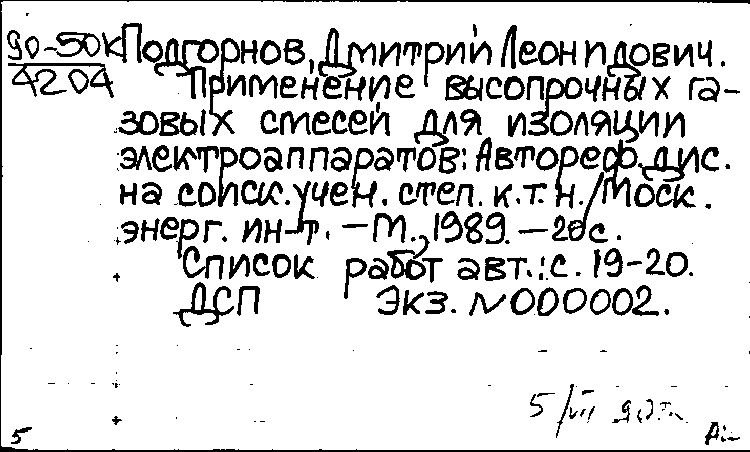 90-50К Подгорнов, Дмитрий Леонидович.
4204 Применение высопрочных га-
зовых смесей для изоляции
электроаппаратов: Автореф. дис.
на соиск. учен. степ. к.т.н. / Моск.
энерг. ин-т. - М., 1989. - 20 с.
Список работ авт.: с. 19-20.
ДСП Экз. N 000002.
5/VII 90г.
5